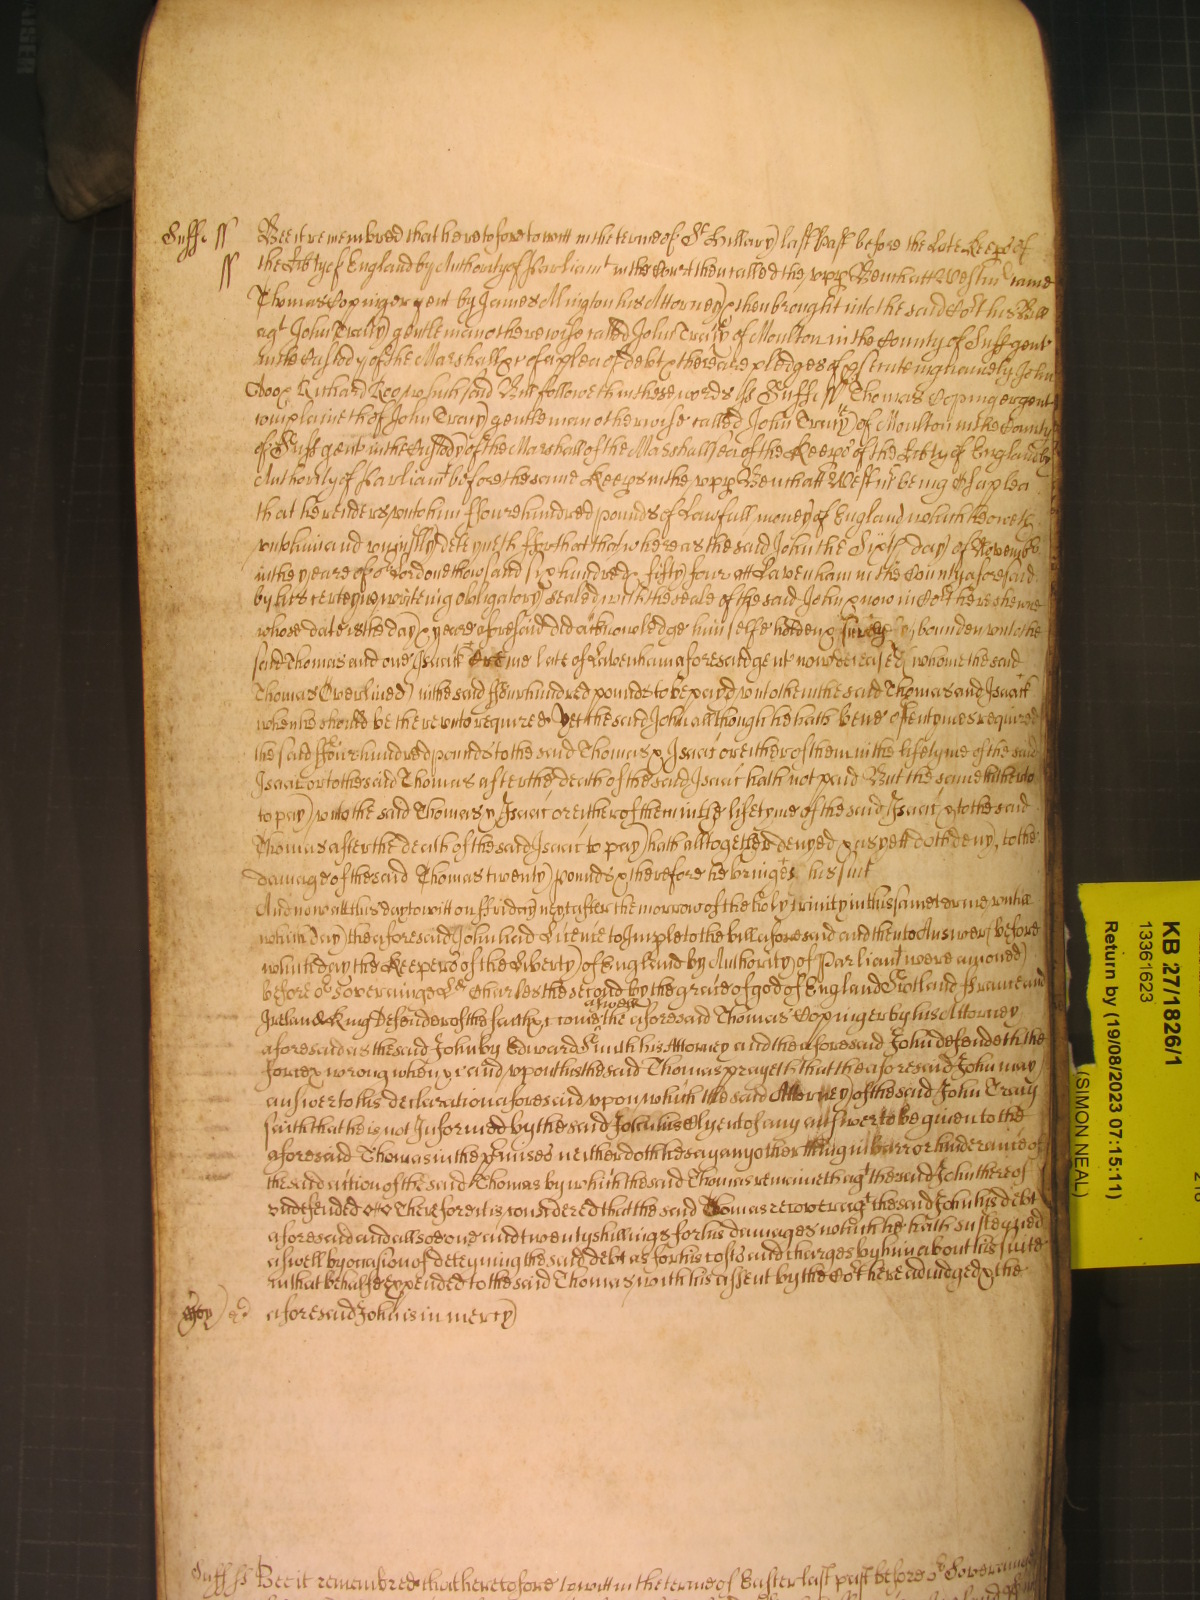 Suff ss Bee it remembred that heretofore to witt in the terme of St Hillary last past before the late Keeps of
ss the Lib'ty of England by Authority of Parliamt in the Court then called the upp Bench att Westm' came
Thomas Copinger gent by James Alington his Attorney & then brought into the said Cot his Bill
agt John Tracy gentleman otherwise called John Tracy of Moulton in the County of Suff gent
in the Custody of the Marshall &c of a plea of debt & there are pledges of p'secuteing namely John
Doo & Richard Roo which said Bill followeth in these words ss Suff ss Thomas Copinger gent
complaineth of John Tracy gentleman otherwise called John Tracy of Moulton in the County
of Suff gent in the Custody of the Marshall of the Marshallsea of the Keeps of the Lib'ty of England by
Authority of Parliamt before the same Keeps in the upp Bench att Westm' being Of a plea
that he render unto him ffowre hundred pounds of Lawfull money of England which he oweth
unto him and uniustly deteyneth ffor that that whereas the said John the Sixth day of Novemb'
in the yeare of or Lord one thowsand six hundred & fifty four att Lavenham in the County aforesaid
by his certeyne writeing obligatory sealed with the seale of the said John & now in Cot here shewne
whose date is the day & yeare aforesaid did acknowledge himselfe holden & firmely bounden unto the
said Thomas and one Isaack late of Lavenham aforesaid gent now deceased whome the said
Thomas Overlived in the said ffour hundred pounds to be paid unto them the said Thomas and Isaack
when he should be thereunto required Yet the said John allthough he hath bene oftentymes required
the said ffour hundred pounds to the said Thomas & Isaac or either of them in the lifetyme of the said
Isaac or to the said Thomas after the death of the said Isaac hath not paid But the same hitherto
to pay unto the said Thomas & Isaac or either of them in the lifetyme of the said Isaac & to the said
Thomas after the death of the said Isaac to pay hath alltogether denyed & as yett doth deny, to the
damage of the said Thomas twenty pounds & therefore he bringes his suit
And now att this day to witt on ffriday next after the morrow of the holy trinity in this same terme untill
which day the aforesaid John had Licence to Imple to the bill aforesaid and then to Answer before
which day the Keepers of the Liberty of England by Authority of Parliamt were amoved
before or Soveraigne Ld Charles the second by the grace of god of England Scotland France and
Ireland King Defender of the faith &c come the aforesaid Thomas Copinger by his Attorney
aforesaid as the said John by Edward Smith his Attorney and the aforesaid John defendeth the
force & wrong when &c and upon this the said Thomas prayeth that the aforesaid John may
answer to his declaration aforesaid upon which the said Attorney of the said John Tracy
saith that he is not Informed by the said John his Clyent of any answer to be given to the
aforesaid Thomas in the p'mises neither doth he say any other thing in barr or hinderance of
the said action of the said Thomas by which the said Thomas remaineth agt the said John thereof
undefended Therefore it is considered that the said Thomas recover agt the said John his debt
aforesaid and allsoe one and twenty shillings for his damages which he hath susteyned
aswell by occasion of deteyning the said debt as for his costs and charges by him about his suite
in that behalfe expended to the said Thomas with his assent by the Cot here adiudged & the
aforesaid John is in mercy
Suff ss Bee it remembred that heretofore to witt in the terme of Easter last past before or Soveraigne
KB 27/1826/1
13361623
Return by (19/08/2023 07:15:11)
(SIMON NEAL)